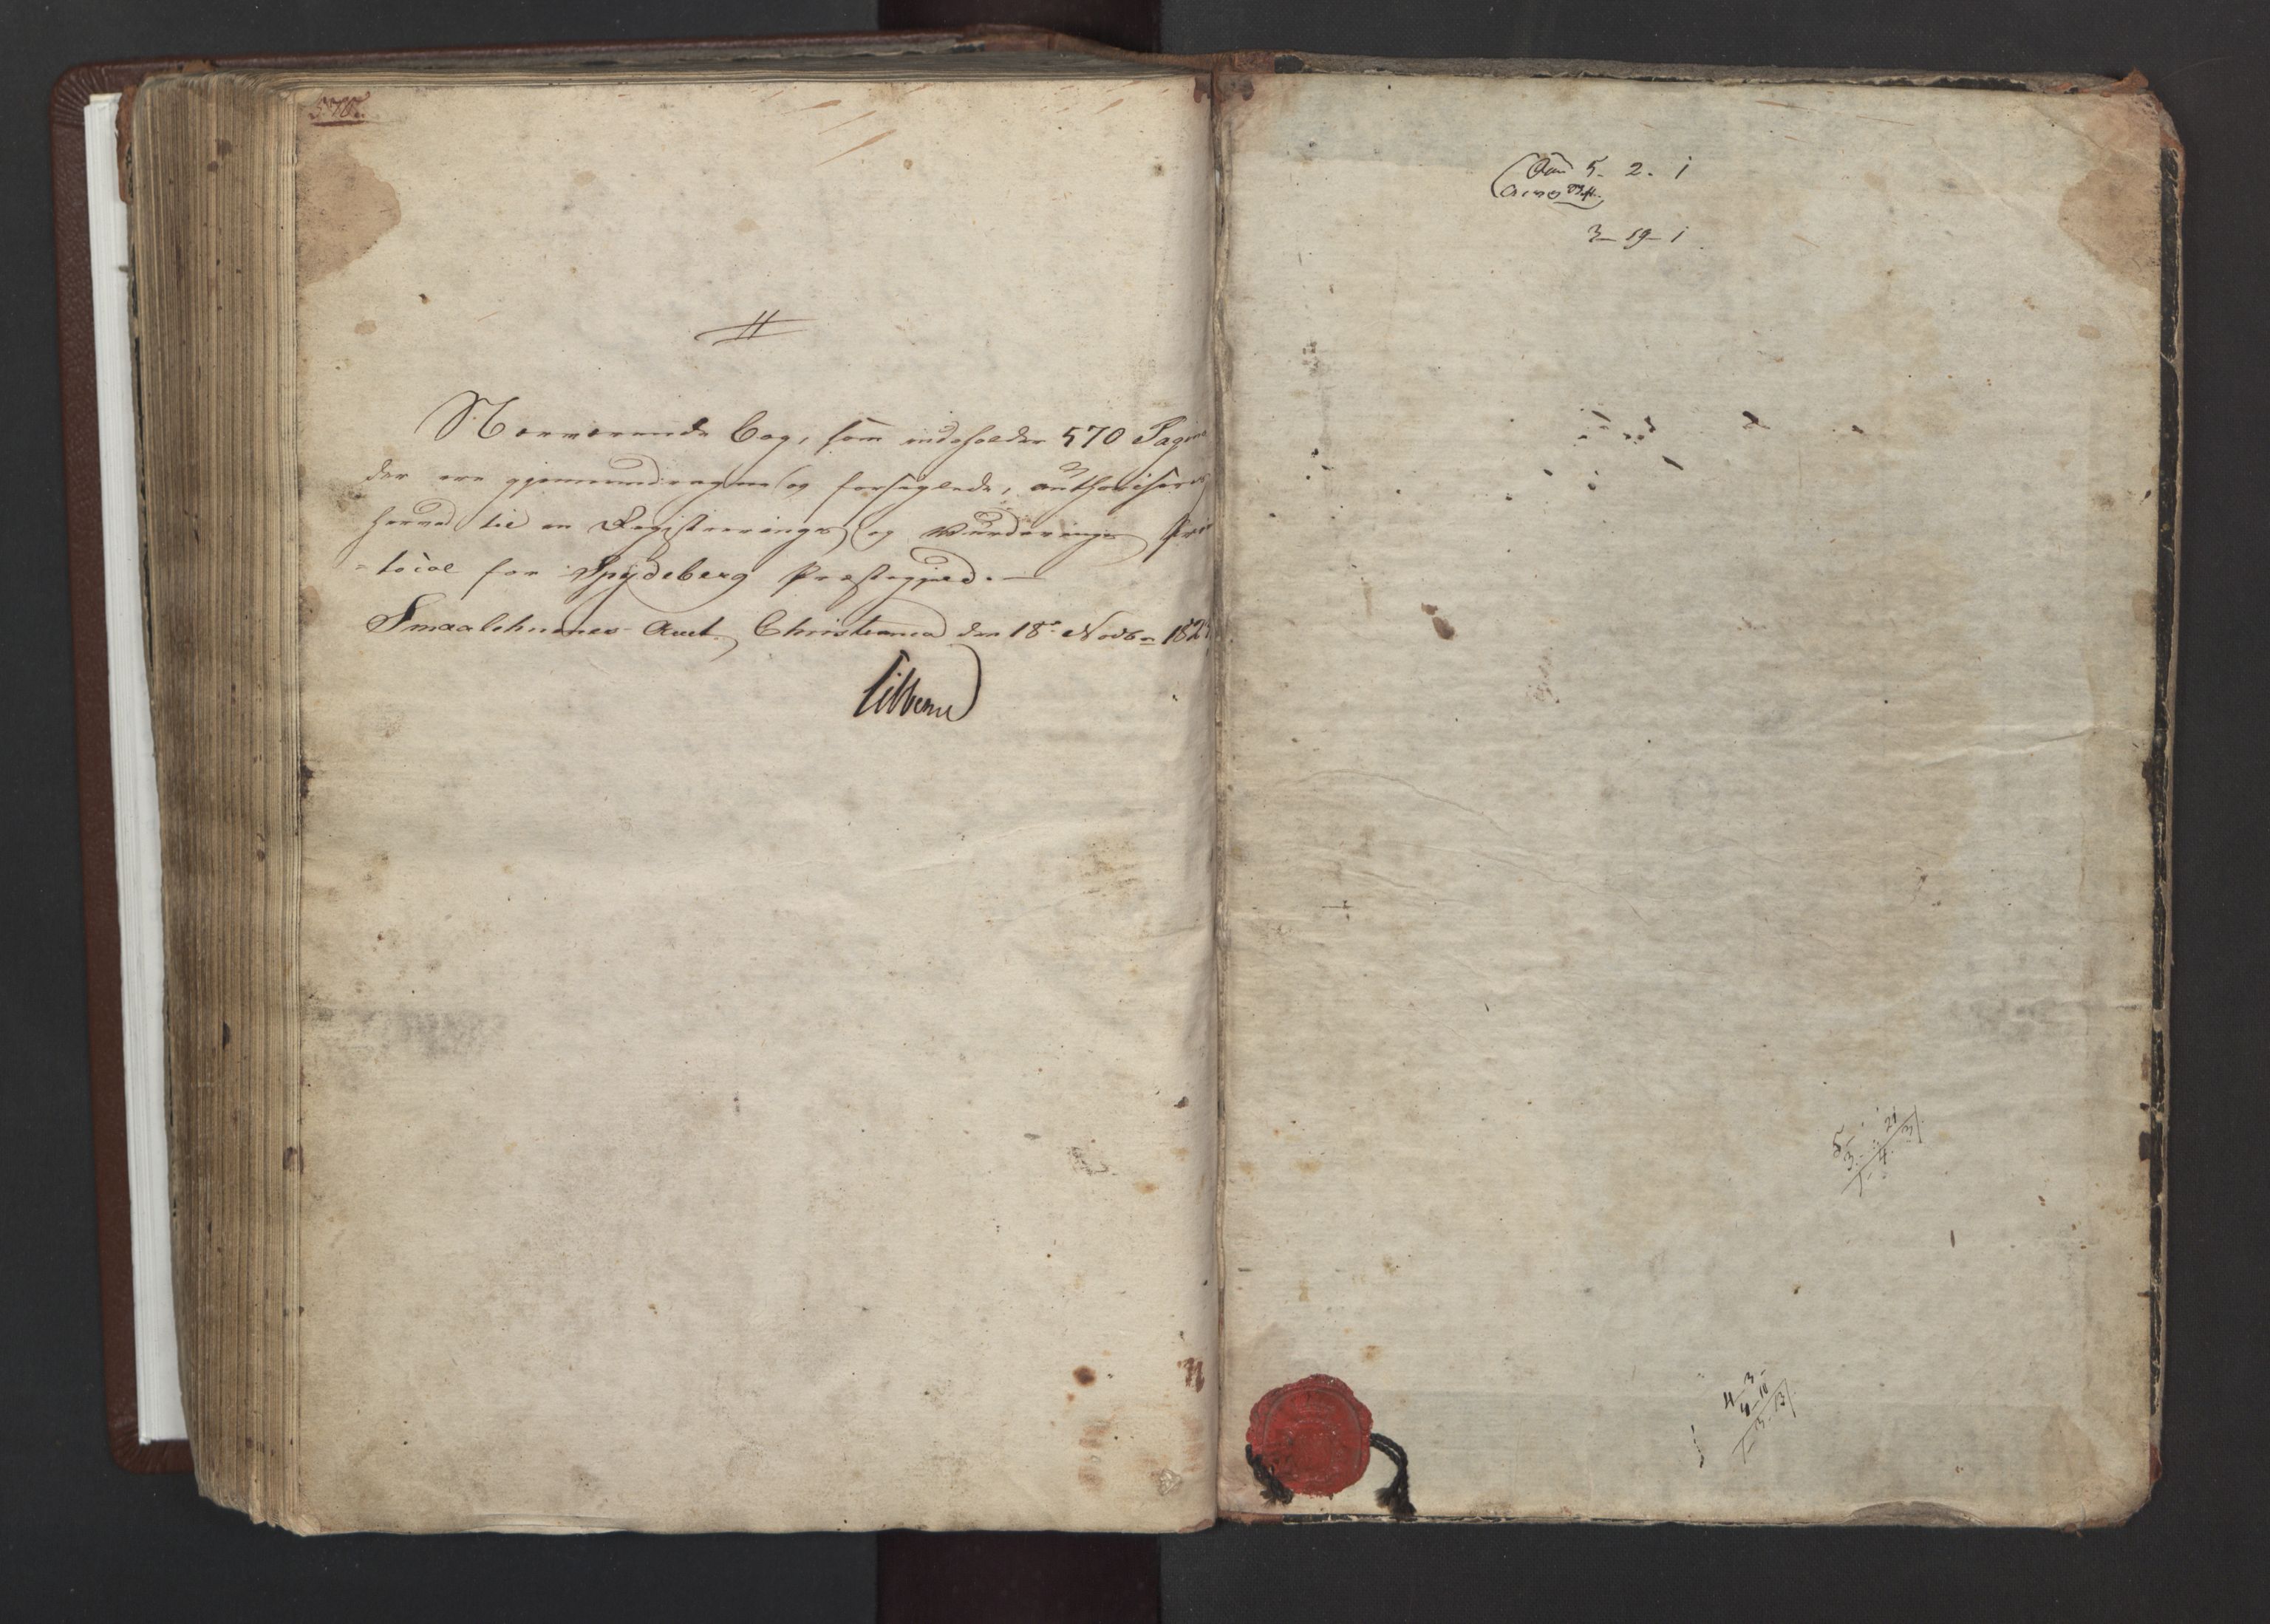 570.
Nærværende Bog, som indeholder 570 Pagin
der ere gjennemdragne og forseglede, authoriseres
herved til en Registrerings og Vurderings Pro
-tocol for Spydeberg Præstegjeld.—
Smaalehnenes Amt, Christiania den 18de Novbr 182
5. 2. 1
3 - 19 - 1